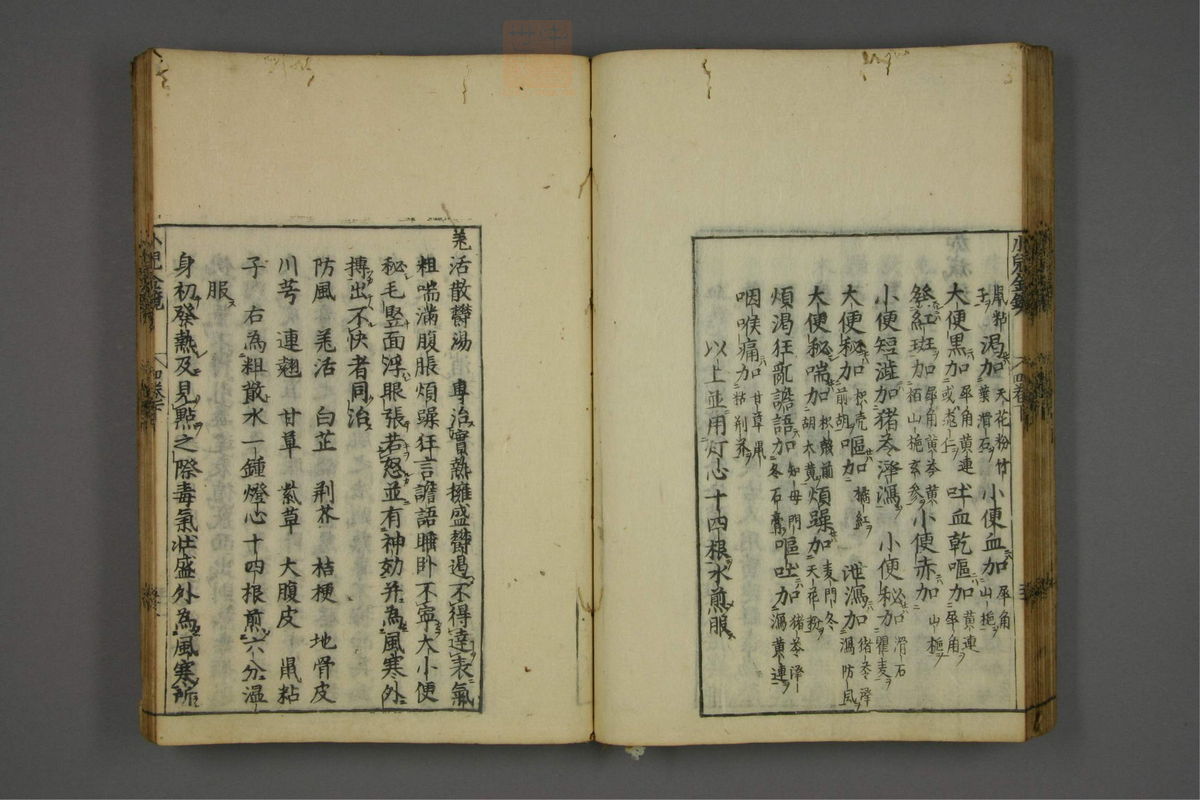 鼠粘 渇加 天花粉竹葉滑石 小便血加 犀角山梔
子
大便黒加 犀角黄連或惹仁 吐血乾嘔加 黄連犀角
發紅斑加 犀角黄芩黄栢山梔玄参 小便赤加 山梔
小便短澁加猪苓澤瀉 小便秘加 滑石瞿麦
大便秘加 枳壳前胡 嘔加 橘紅 泄瀉加 猪苓澤瀉防風
大便秘喘加 枳殻前胡大黄 煩躁加 麦門冬天花粉
煩渇狂乱譫語加 知母門冬石膏 嘔吐加 猪苓澤瀉黄連
咽喉痛加 甘草鼠粘荊芥
以上並用灯心十四根水煎服
羗活散欝湯 專治實熱擁盛欝遏不得達表氣
粗喘滿腹脹煩躁狂言譫語睡卧不寧大小便
秘毛竪面浮眼張若怒並有神効并為風寒外
摶出不快者同治
防風 羗活 白芷 荆芥 桔梗 地骨皮
川芎 連翹 甘草 紫草 大腹皮 鼠粘
子 右為粗散水一鍾燈心十四根煎六分温
服
身初發熱及見點之際毒氣壯盛外為風寒所
小兒金鏡 四卷下